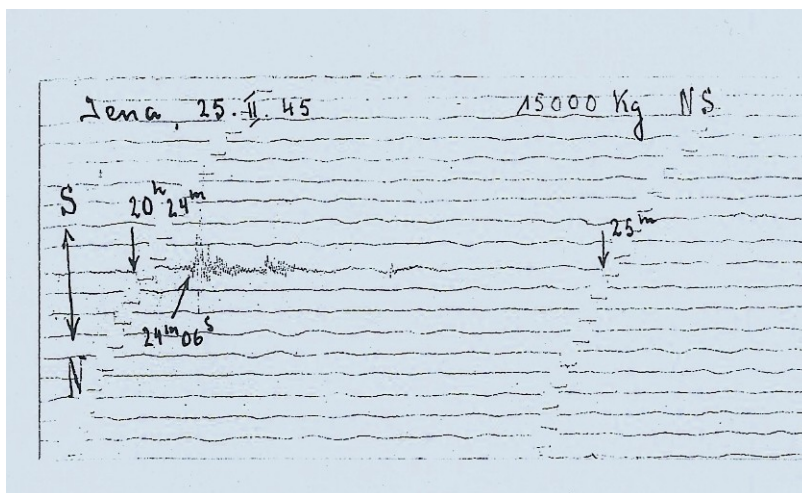 Jena, 25. II. 45 15000 Kg NS
S 20h 24m
25m
24m 06s
N